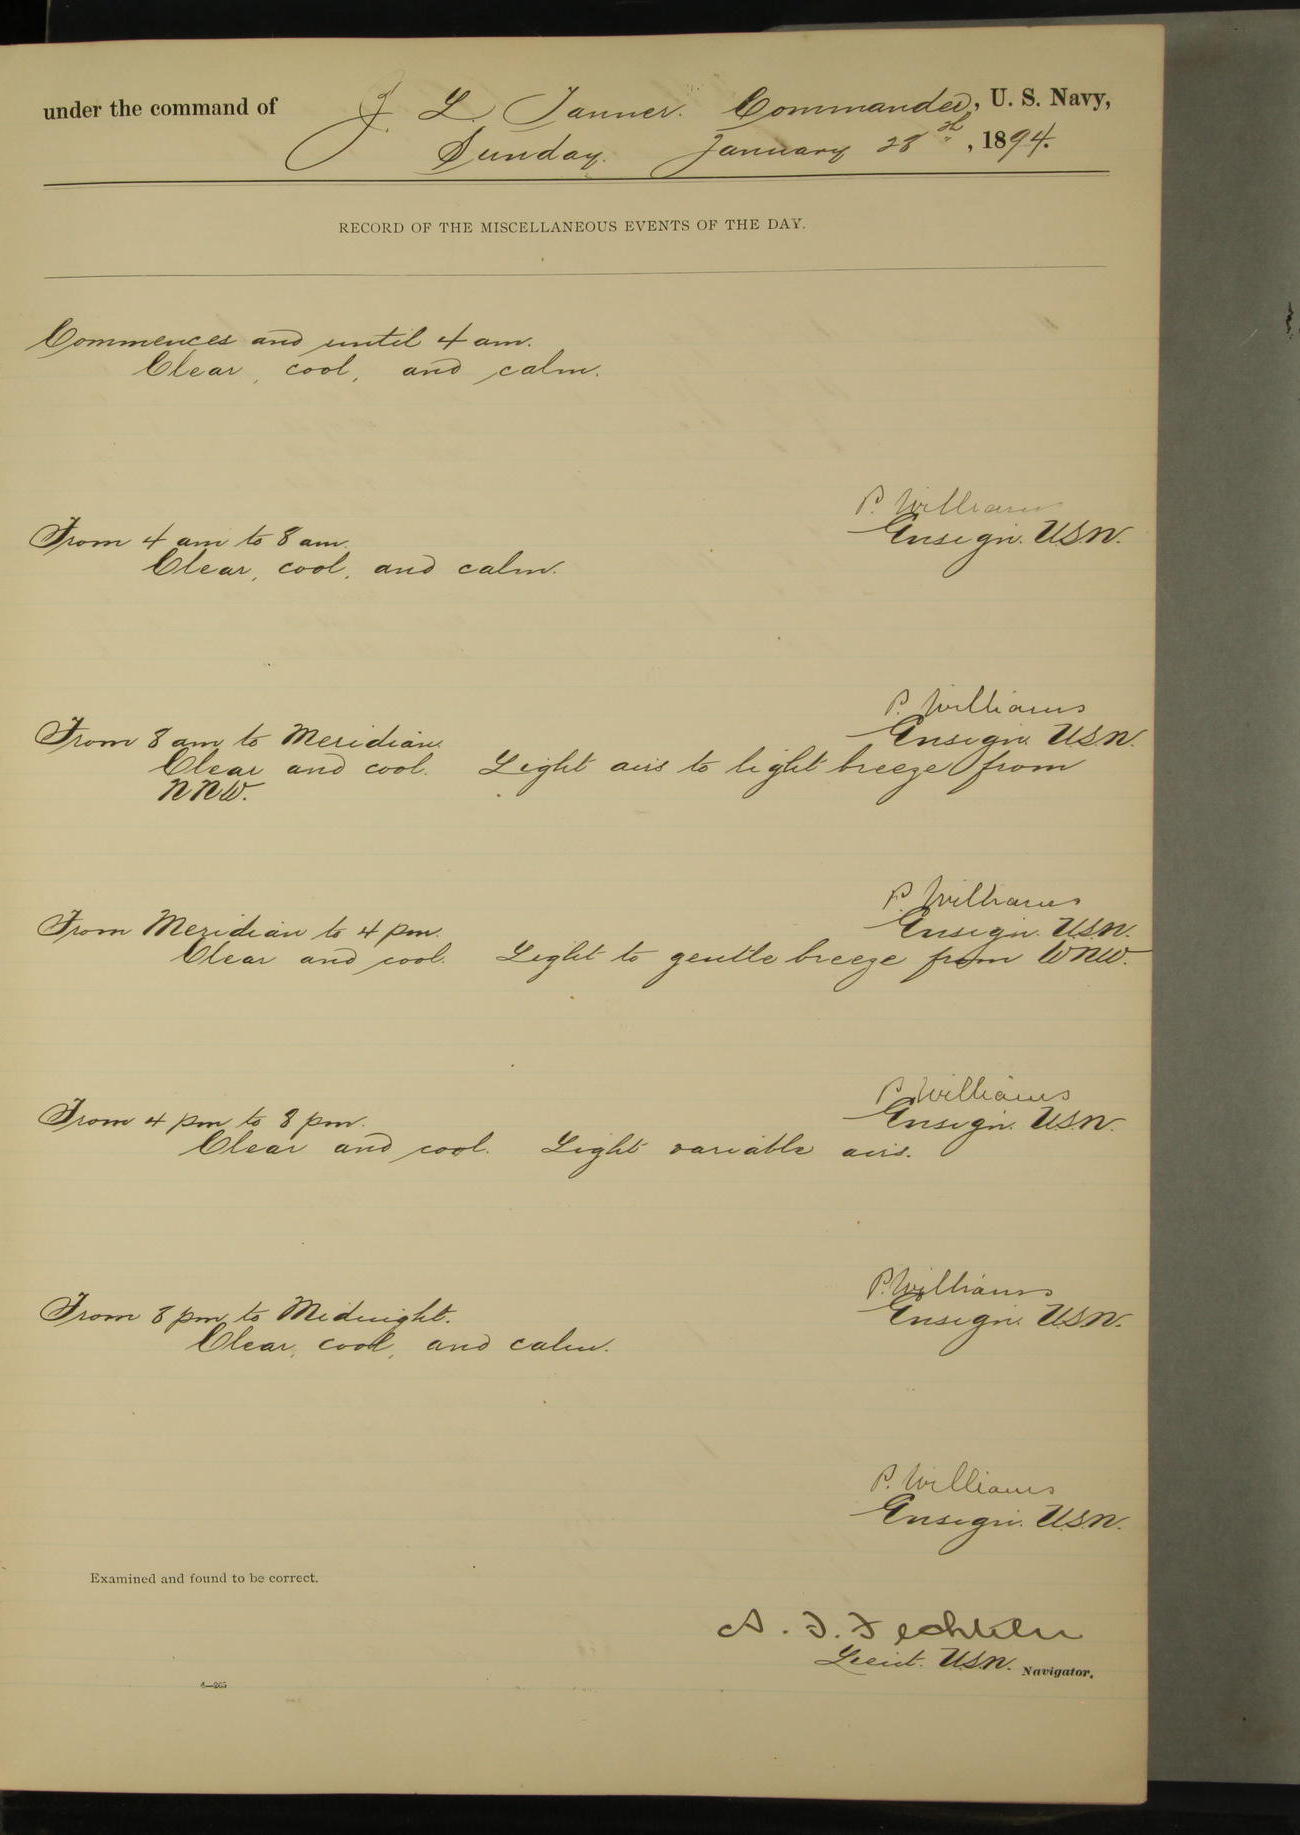 under the command of Z. L. Tanner. Commander, U. S. Navy,
Sunday. January 28th, 1894.
RECORD OF THE MISCELLANEOUS EVENTS OF THE DAY.
Commences and until 4 am.
Clear, cool, and calm.
P. Williams
Ensign. U.S.N.
From 4 am to 8 am.
Clear, cool, and calm.
P. Williams
Ensign. U.S.N.
From 8 am to Meridian.
Clear and cool. Light airs to light breeze from
NNW.
P. Williams
Ensign. U.S.N.
From Meridian to 4 pm.
Clear and cool. Light to gentle breeze from WNW.
P. Williams
Ensign. U.S.N.
From 4 pm to 8 pm.
Clear and cool. Light variable airs.
P. Williams
Ensign. U.S.N.
From 8 pm to Midnight.
Clear, cool, and calm.
P. Williams
Ensign. U.S.N.
Examined and found to be correct.
A. F. Fechteler
Lieut. U.S.N. Navigator.